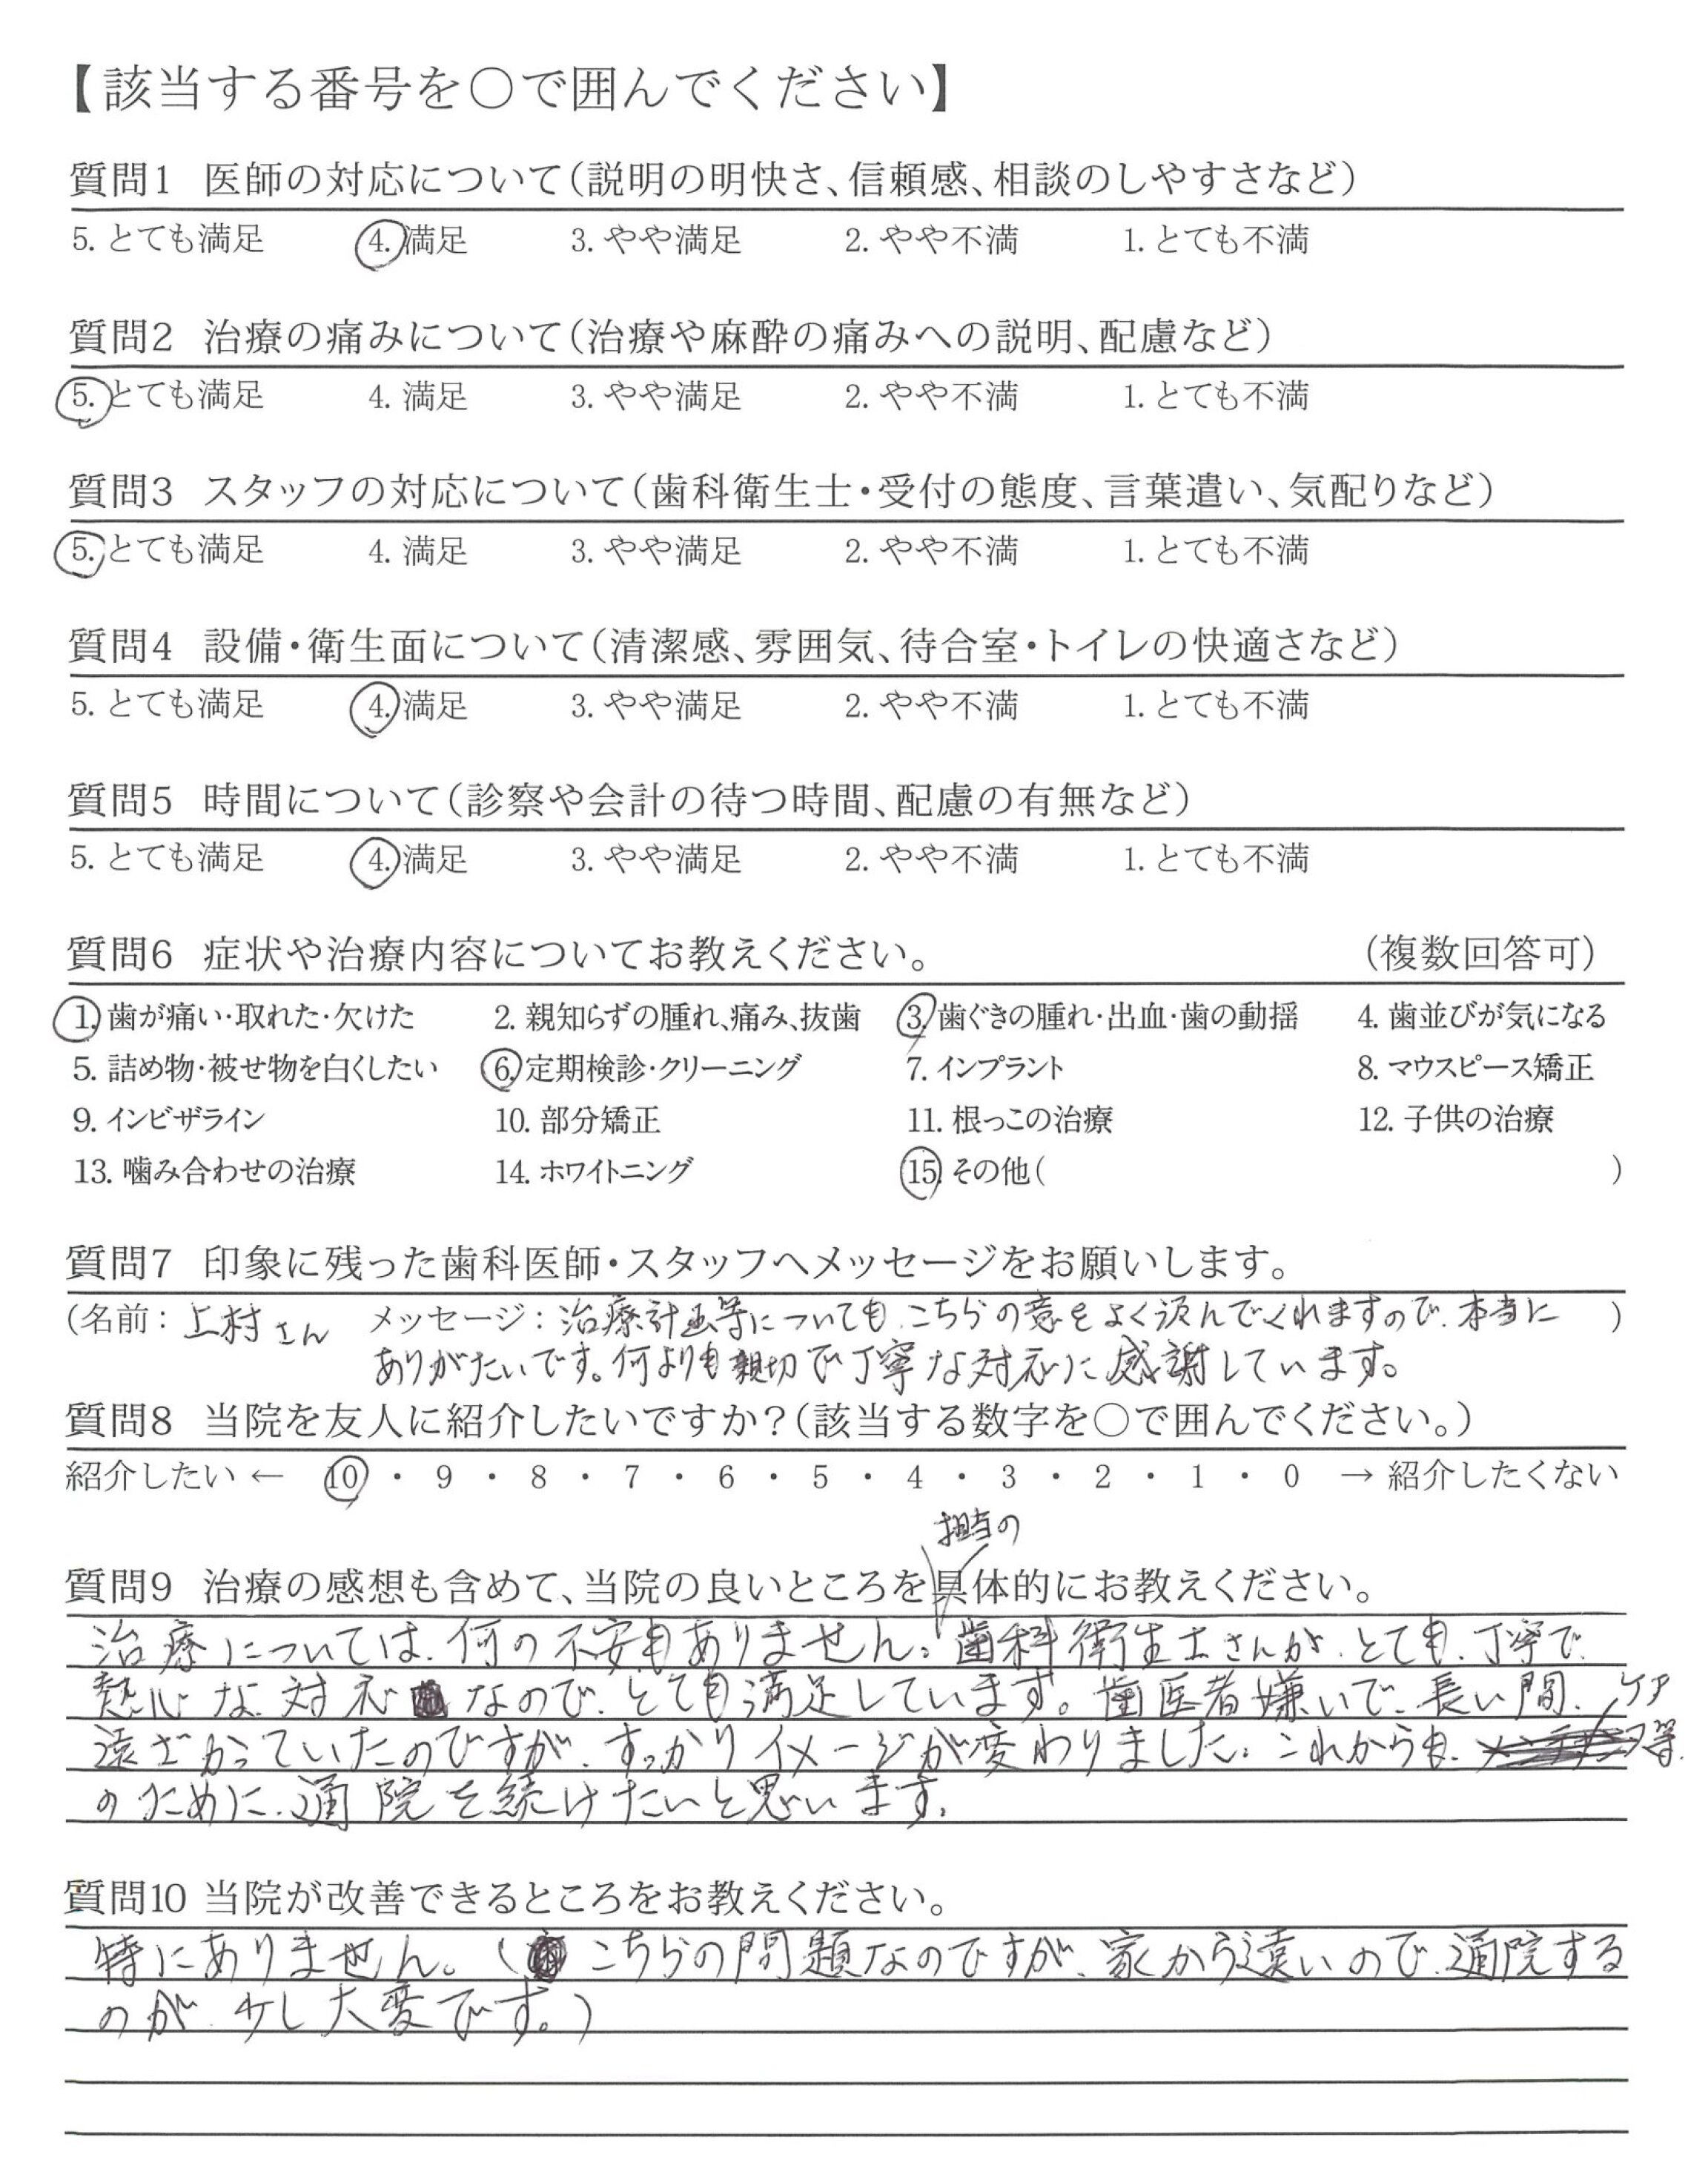 【該当する番号を○で囲んでください】
質問1 医師の対応について(説明の明快さ、信頼感、相談のしやすさなど)
5. とても満足 4. 満足 3. やや満足 2. やや不満 1. とても不満
質問2 治療の痛みについて(治療や麻酔の痛みへの説明、配慮など)
5. とても満足 4. 満足 3. やや満足 2. やや不満 1. とても不満
質問3 スタッフの対応について(歯科衛生士・受付の態度、言葉遣い、気配りなど)
5. とても満足 4. 満足 3. やや満足 2. やや不満 1. とても不満
質問4 設備・衛生面について(清潔感、雰囲気、待合室・トイレの快適さなど)
5. とても満足 4. 満足 3. やや満足 2. やや不満 1. とても不満
質問5 時間について(診察や会計の待つ時間、配慮の有無など)
5. とても満足 4. 満足 3. やや満足 2. やや不満 1. とても不満
質問6 症状や治療内容についてお教えください。 (複数回答可)
1. 歯が痛い・取れた・欠けた 2. 親知らずの腫れ、痛み、抜歯 3. 歯ぐきの腫れ・出血・歯の動揺 4. 歯並びが気になる
5. 詰め物・被せ物を白くしたい 6. 定期検診・クリーニング 7. インプラント 8. マウスピース矯正
9. インビザライン 10. 部分矯正 11. 根っこの治療 12. 子供の治療
13. 噛み合わせの治療 14. ホワイトニング 15. その他( )
質問7 印象に残った歯科医師・スタッフへメッセージをお願いします。
(名前：上村さん メッセージ：治療計画等についても、こちらの意をよく汲んでくれますので、本当に )
ありがたいです。何よりも親切で丁寧な対応に感謝しています。
質問8 当院を友人に紹介したいですか？(該当する数字を○で囲んでください。)
紹介したい ← 10 ・ 9 ・ 8 ・ 7 ・ 6 ・ 5 ・ 4 ・ 3 ・ 2 ・ 1 ・ 0 → 紹介したくない
担当の
質問9 治療の感想も含めて、当院の良いところを具体的にお教えください。
治療については、何の不安もありません。歯科衛生士さんが、とても、丁寧で、
熱心な対応なので、とても満足しています。歯医者嫌いで、長い間、
ケア
遠ざかっていたのですが、すっかりイメージが変わりました。これからも、等
のために、通院を続けたいと思います。
質問10 当院が改善できるところをお教えください。
特にありません。(こちらの問題なのですが、家から遠いので、通院する
のが、少し大変です。)